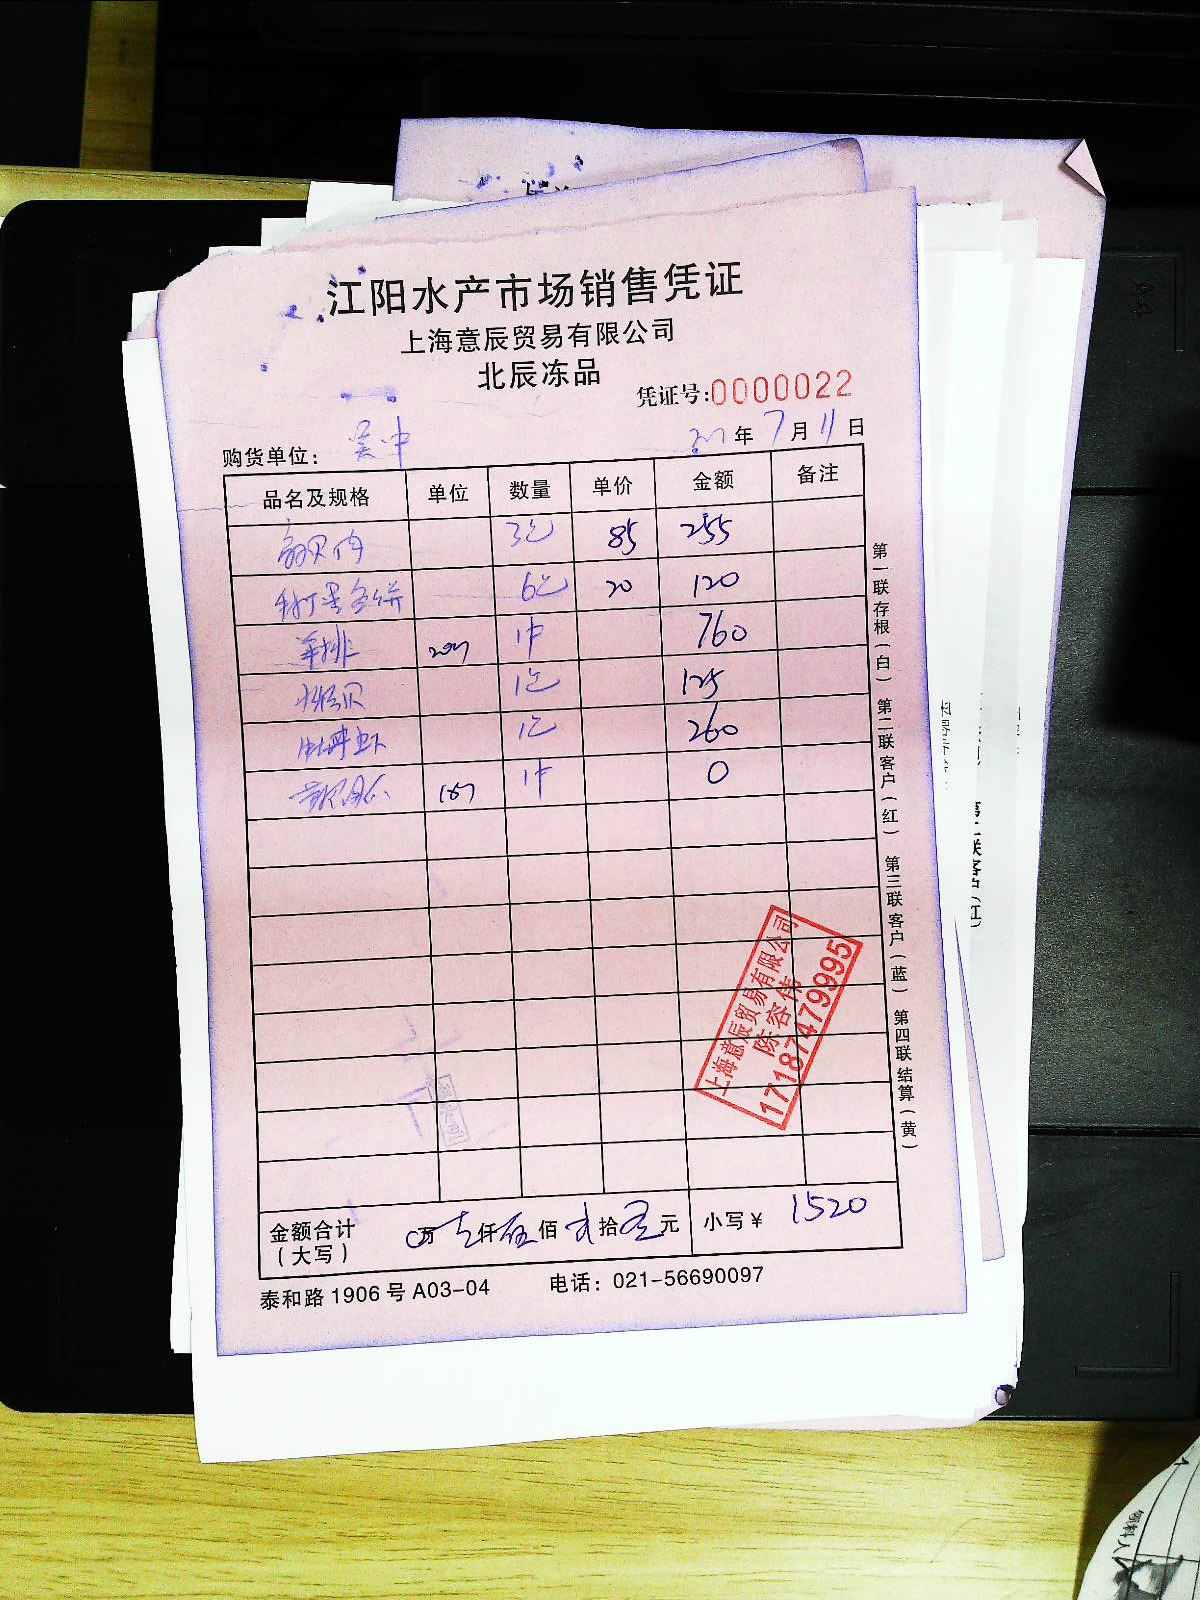 江阳水产市场销售凭证
上海意辰贸易有限公司
北辰冻品
凭证号:0000022
年 7月 11日
购货单位: 吴中
品名及规格 单位 数量 单价 金额 备注
扇贝肉 3包 85 255
6包 20 120
羊排 1件 760
1包 125
1包 260
1件 0
第一联存根(白) 第二联客户(红) 第三联客户(蓝) 第四联结算(黄)
上海意辰贸易有限公司
陈容伟
17187479995
金额合计(大写) 0万 仟伍佰 拾 元 小写¥ 1520
泰和路1906号A03-04 电话: 021-56690097